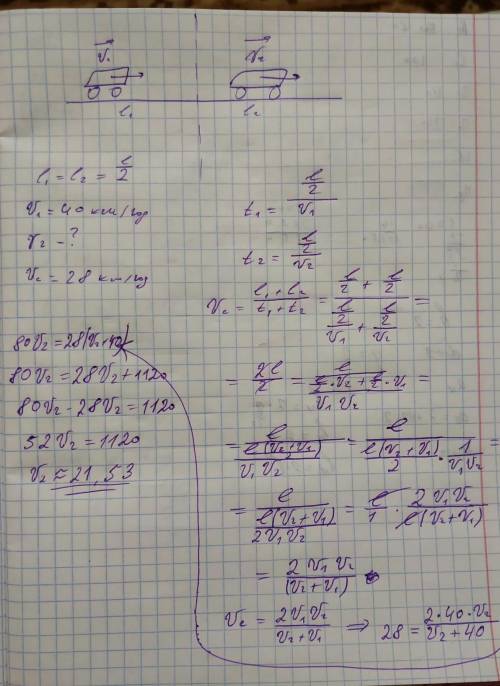 V₁ V₂
l₁ l₂
l₁ = l₂ = l/2
V₁ = 40 км/год
V₂ - ?
Vc = 28 км/год
t₁ = (l/2)/V₁
t₂ = (l/2)/V₂
Vc = (l₁ + l₂)/(t₁ + t₂) = (l/2 + l/2)/((l/2)/V₁ + (l/2)/V₂) =
= (2l/2)/ = l/((l/2 · V₂ + l/2 · V₁)/(V₁ V₂)) =
= l/(l(V₂+V₁)/(V₁ V₂)) = l/(l(V₂ + V₁)/2 · 1/(V₁V₂)) =
= l/(l(V₂ + V₁)/(2V₁V₂)) = l/1 · 2V₁V₂/(l(V₂ + V₁))
= 2V₁V₂/(V₂ + V₁)
Vc = 2V₁V₂/(V₂ + V₁) ⇒ 28 = (2·40·V₂)/(V₂ + 40)
80V₂ = 28(V₂+40)
80V₂ = 28V₂ + 1120
80V₂ - 28V₂ = 1120
52V₂ = 1120
V₂ ≈ 21,53